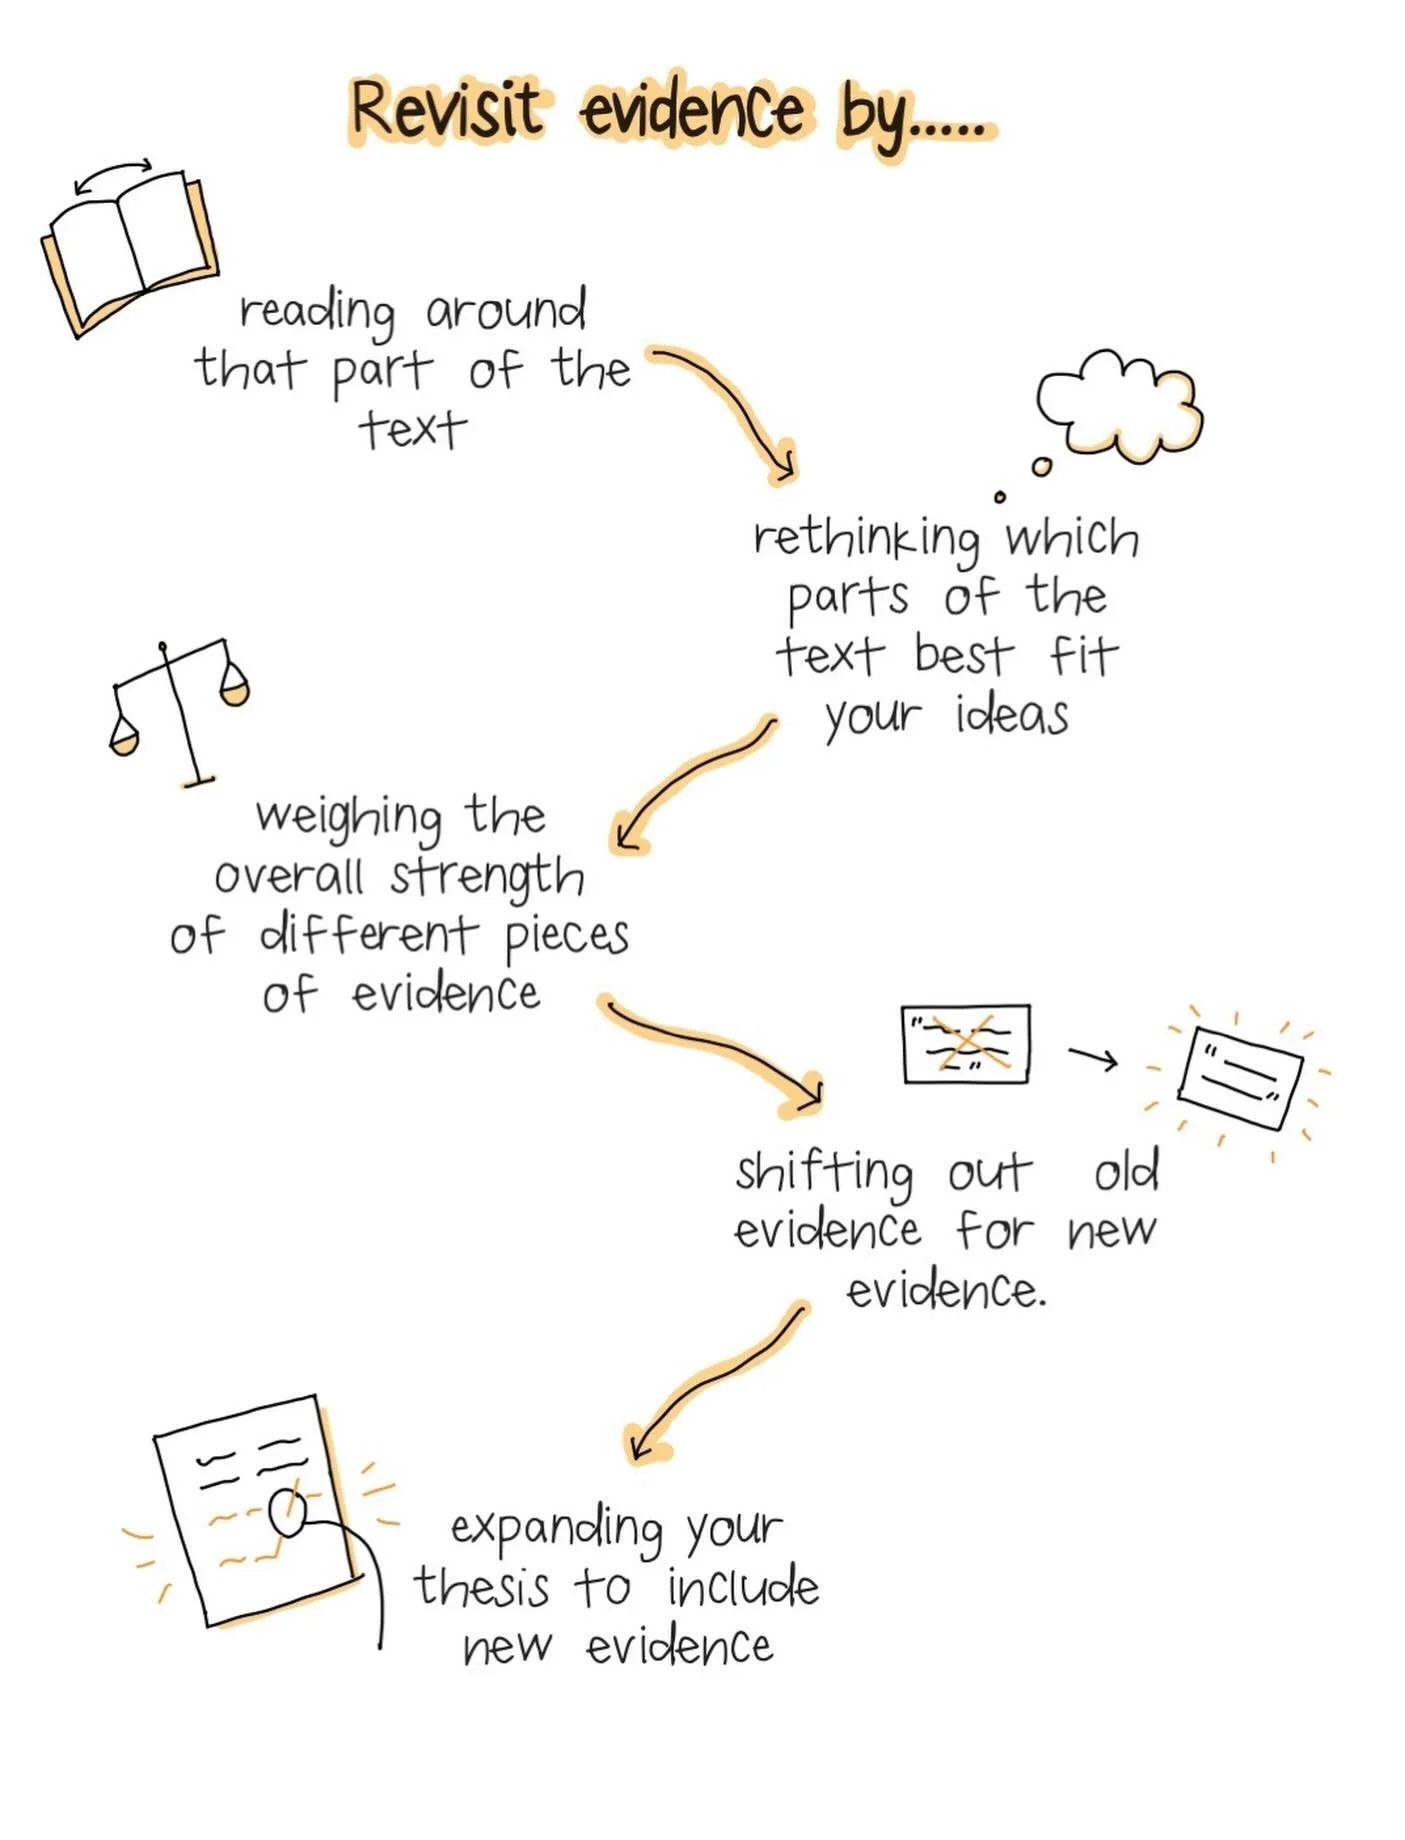 Revisit evidence by.....
reading around
that part of the
text
rethinking which
parts of the
text best fit
your ideas
weighing the
overall strength
of different pieces
of evidence
shifting out old
evidence for new
evidence.
expanding your
thesis to include
new evidence